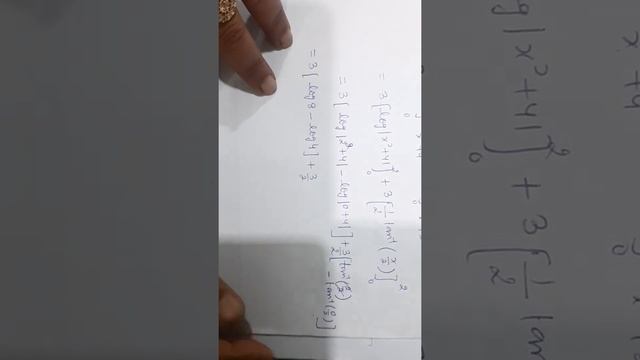 x² + 4
= 3 [log|x²+4|]₀² + 3 [1/2 tan⁻¹(x/2)]₀²
= 3 [log|2²+4| - log|0+4|] + 3/2 [tan⁻¹(2/2) - tan⁻¹(0/2)]
= 3 [log 8 - log 4] + 3/2